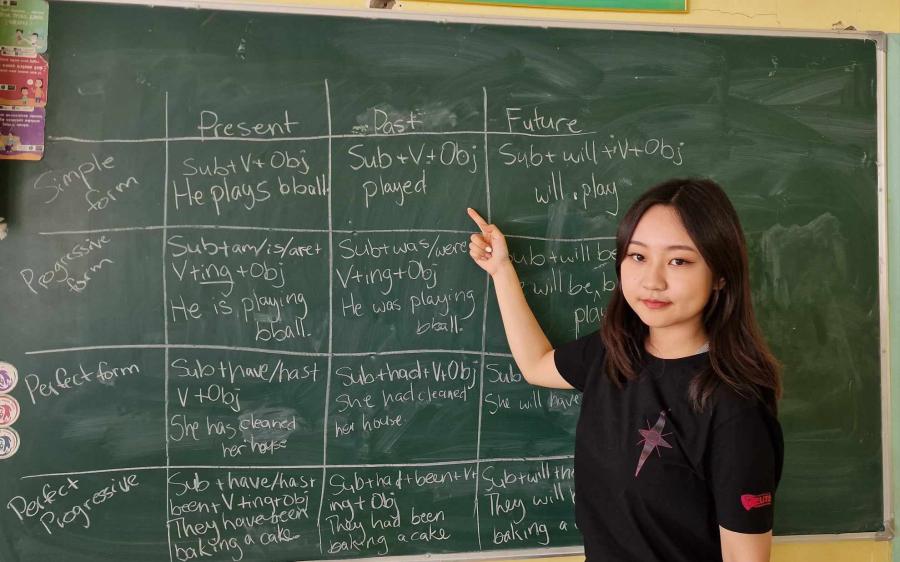 Present Past Future
Simple form
Sub+V+Obj
He plays bball
Sub+V+Obj
played
Sub+will+V+Obj
will play
Progressive form
Sub+am/is/are+
V+ing+Obj
He is playing
bball.
Sub+was/were
V+ing+Obj
He was playing
bball.
Sub+will be
will be
Perfect form
Sub+have/has+
V+Obj
She has cleaned
her house
Sub+had+V+Obj
She had cleaned
her house.
Sub
She will have
Perfect Progressive
Sub+have/has+
been+V+ing+Obj
They have been
baking a cake
Sub+had+been+V+
ing+Obj
They had been
baking a cake
Sub+will+
They will
baking a